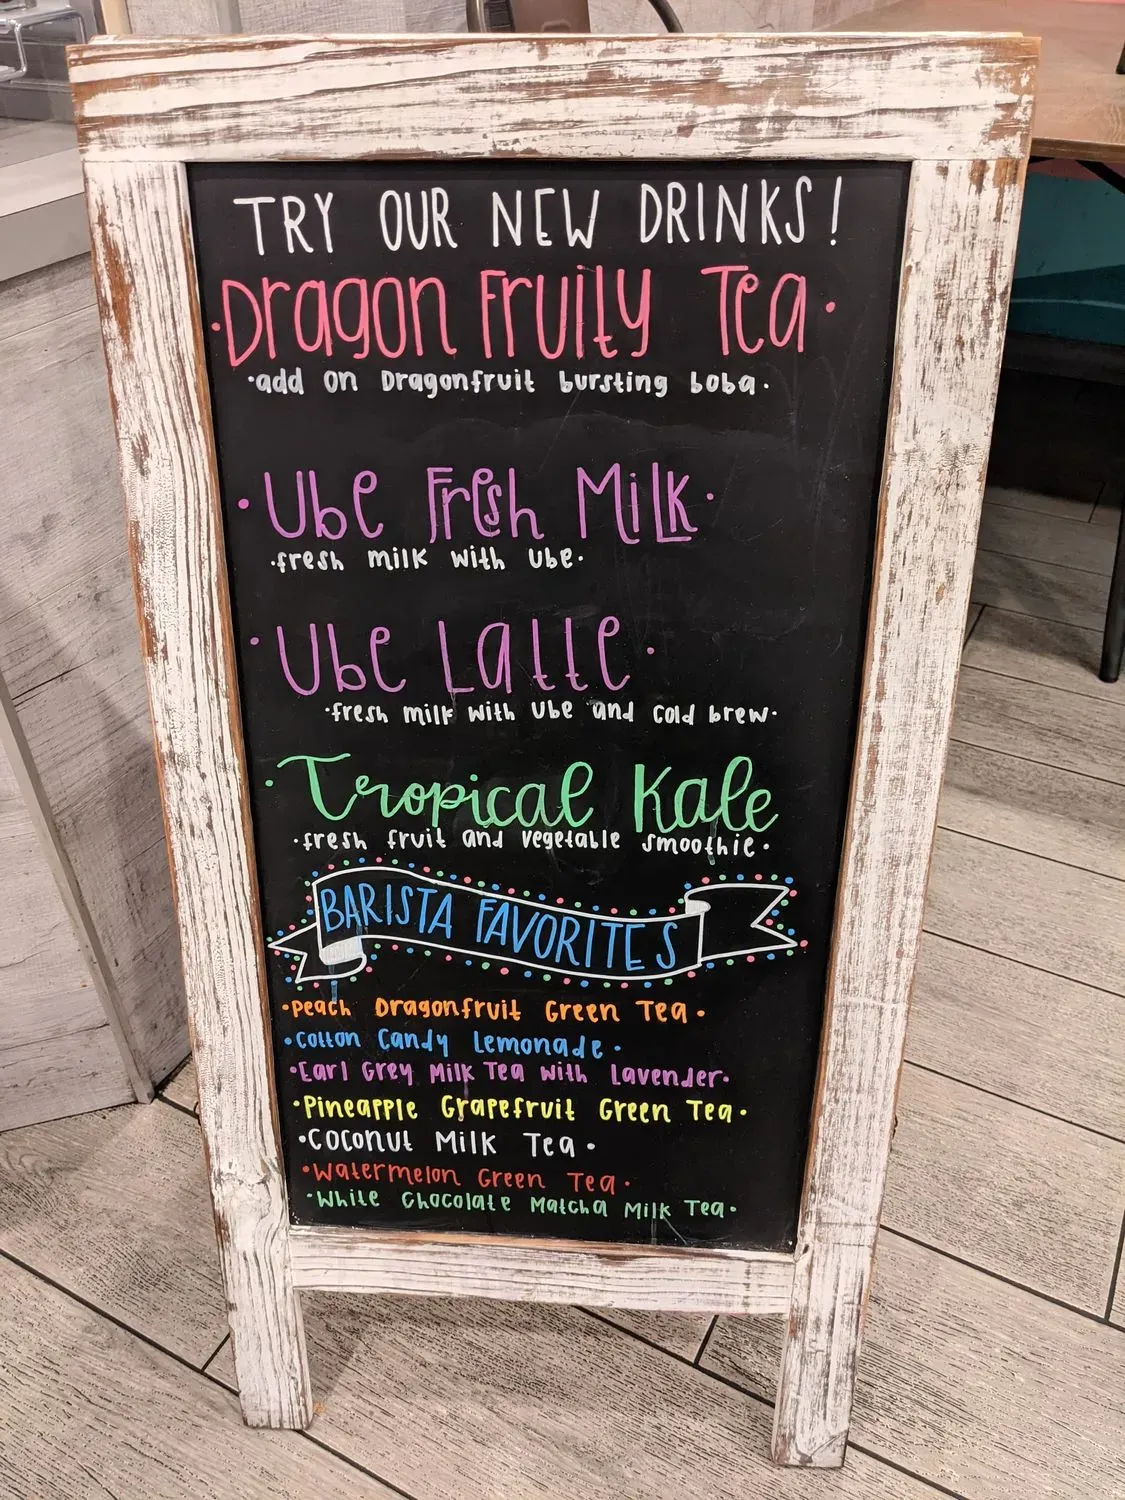 TRY OUR NEW DRINKS!
·Dragon Fruity Tea·
·add on Dragonfruit bursting boba·
·Ube Fresh Milk·
·fresh milk with ube·
·Ube Latte·
·fresh milk with ube and cold brew·
·Tropical Kale
·fresh fruit and vegetable smoothie·
BARISTA FAVORITES
·Peach Dragonfruit Green Tea·
·Cotton Candy Lemonade·
·Earl Grey Milk Tea with Lavender·
·Pineapple Grapefruit Green Tea·
·Coconut Milk Tea·
·Watermelon Green Tea·
·White Chocolate Matcha Milk Tea·